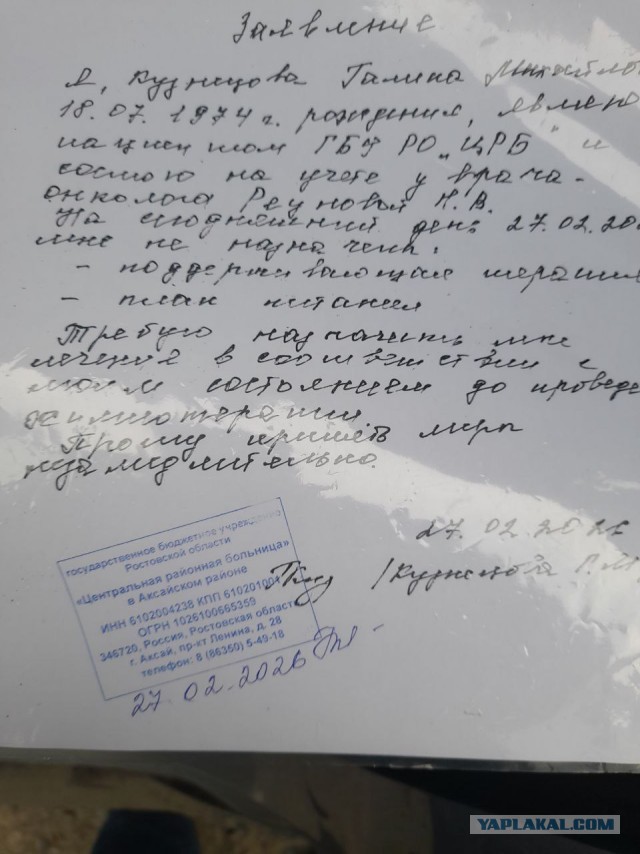 Заявление
Я, Кузнецова Галина Михайло
18.07.1974г. рождения, являю
пациентом ГБУ РО „ЦРБ" и
состою на учете у врача-
онколога Реуновой Н.В.
На сегодняшний день 27.02.20
мне не назначены:
- поддерживающая терапия
- план питания
Требую назначить мне
лечение в соответствии с
моим состоянием до проведе
химиотерапии.
Прошу принять меры
незамедлительно.
27.02.2026
/Кузнецова Г.М.
государственное бюджетное учреждение
Ростовской области
«Центральная районная больница»
в Аксайском районе
ИНН 6102004238 КПП 610201001
ОГРН 1026100665359
346720, Россия, Ростовская область
г. Аксай, пр-кт Ленина, д. 28
телефон: 8 (86350) 5-49-18
27.02.2026
YAPLAKAL.COM